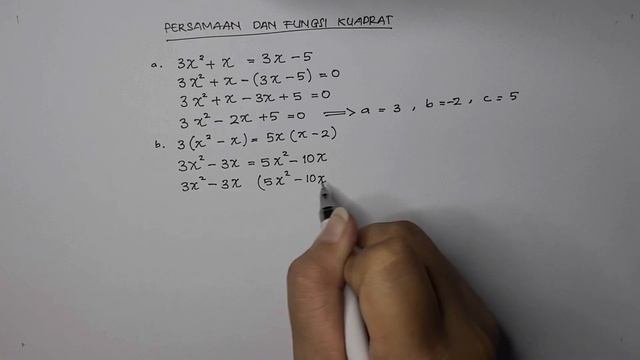 PERSAMAAN DAN FUNGSI KUADRAT
a. 3x² + x = 3x - 5
3x² + x - (3x - 5) = 0
3x² + x - 3x + 5 = 0
3x² - 2x + 5 = 0 ⟹ a = 3 , b = -2 , c = 5
b. 3(x² - x) = 5x (x - 2)
3x² - 3x = 5x² - 10x
3x² - 3x (5x² - 10x